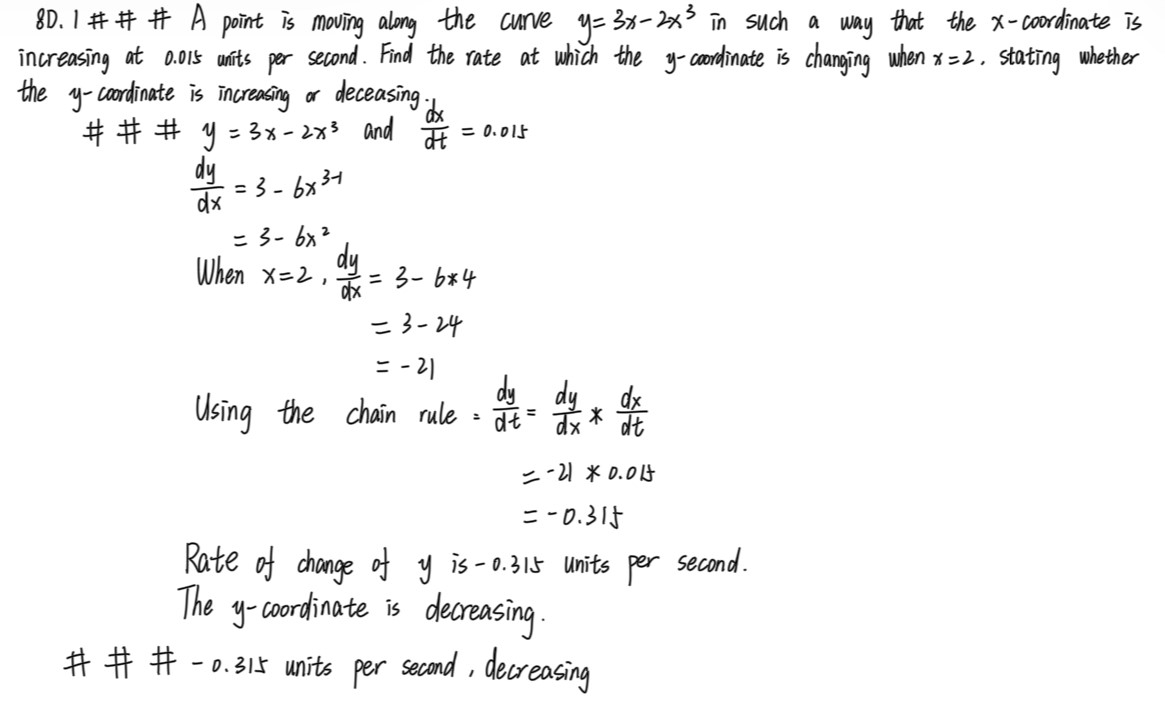 8D. 1 # # # A point is moving along the curve y = 3x - 2x³ in such a way that the x-coordinate is
increasing at 0.015 units per second. Find the rate at which the y-coordinate is changing when x = 2, stating whether
the y-coordinate is increasing or deceasing.
# # # y = 3x - 2x³ and dx/dt = 0.015
dy/dx = 3 - 6x³⁻¹
= 3 - 6x²
When x = 2, dy/dx = 3 - 6*4
= 3 - 24
= -21
Using the chain rule = dy/dt = dy/dx * dx/dt
= -21 * 0.015
= -0.315
Rate of change of y is -0.315 units per second.
The y-coordinate is decreasing.
# # # -0.315 units per second, decreasing